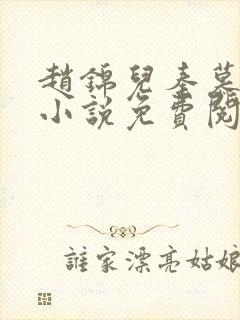 趙錦兒秦慕
小說免費閱
誰家漂亮姑娘